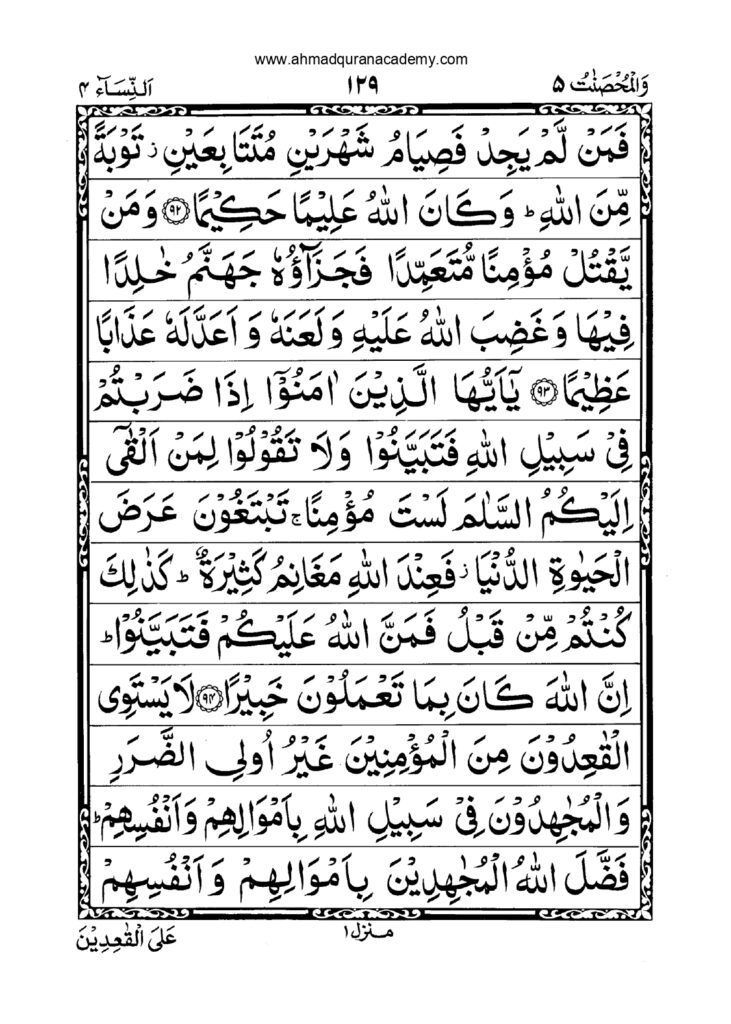 www.ahmadquranacademy.com
وَالْمُحْصَنٰتُ ۵ ۱۲۹ اَلنِّسَآء ۴
فَمَنْ لَّمْ يَجِدْ فَصِيَامُ شَهْرَيْنِ مُتَتَابِعَيْنِ ز تَوْبَةً
مِّنَ اللّٰهِ ط وَكَانَ اللّٰهُ عَلِيْمًا حَكِيْمًا ﴿۹۲﴾ وَمَنْ
يَّقْتُلْ مُؤْمِنًا مُّتَعَمِّدًا فَجَزَآؤُهٗ جَهَنَّمُ خٰلِدًا
فِيْهَا وَغَضِبَ اللّٰهُ عَلَيْهِ وَلَعَنَهٗ وَاَعَدَّ لَهٗ عَذَابًا
عَظِيْمًا ﴿۹۳﴾ يٰٓاَيُّهَا الَّذِيْنَ اٰمَنُوْٓا اِذَا ضَرَبْتُمْ
فِيْ سَبِيْلِ اللّٰهِ فَتَبَيَّنُوْا وَلَا تَقُوْلُوْا لِمَنْ اَلْقٰٓى
اِلَيْكُمُ السَّلٰمَ لَسْتَ مُؤْمِنًا ج تَبْتَغُوْنَ عَرَضَ
الْحَيٰوةِ الدُّنْيَا ز فَعِنْدَ اللّٰهِ مَغَانِمُ كَثِيْرَةٌ ط كَذٰلِكَ
كُنْتُمْ مِّنْ قَبْلُ فَمَنَّ اللّٰهُ عَلَيْكُمْ فَتَبَيَّنُوْا ط
اِنَّ اللّٰهَ كَانَ بِمَا تَعْمَلُوْنَ خَبِيْرًا ﴿۹۴﴾ لَا يَسْتَوِى
الْقٰعِدُوْنَ مِنَ الْمُؤْمِنِيْنَ غَيْرُ اُولِى الضَّرَرِ
وَالْمُجٰهِدُوْنَ فِيْ سَبِيْلِ اللّٰهِ بِاَمْوَالِهِمْ وَاَنْفُسِهِمْ ط
فَضَّلَ اللّٰهُ الْمُجٰهِدِيْنَ بِاَمْوَالِهِمْ وَاَنْفُسِهِمْ
منزل ۱
عَلَى الْقٰعِدِيْنَ